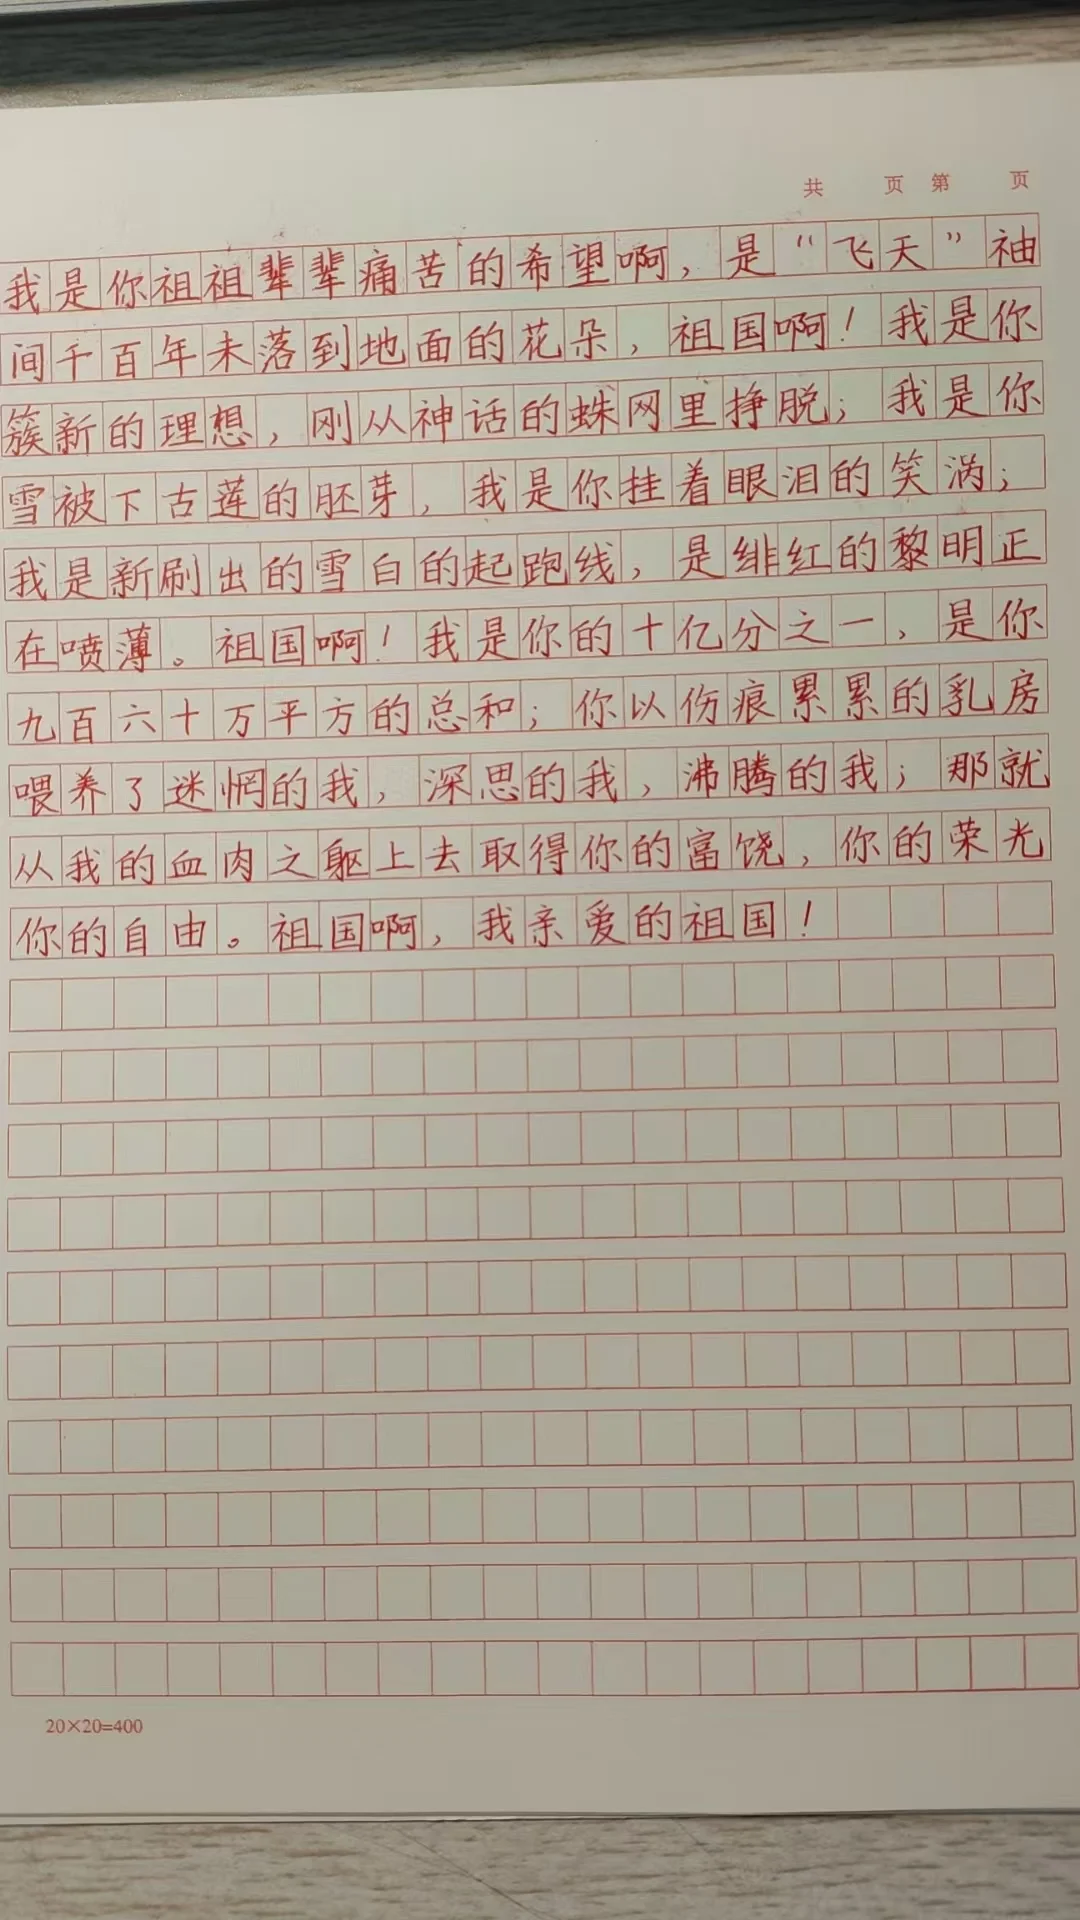 共 页 第 页
我是你祖祖辈辈痛苦的希望啊，是“飞天”袖
间千百年未落到地面的花朵，祖国啊！我是你
簇新的理想，刚从神话的蛛网里挣脱；我是你
雪被下古莲的胚芽，我是你挂着眼泪的笑涡；
我是新刷出的雪白的起跑线，是绯红的黎明正
在喷薄。祖国啊！我是你的十亿分之一，是你
九百六十万平方的总和；你以伤痕累累的乳房
喂养了迷惘的我，深思的我，沸腾的我；那就
从我的血肉之躯上去取得你的富饶，你的荣光
你的自由。祖国啊，我亲爱的祖国！
20×20=400